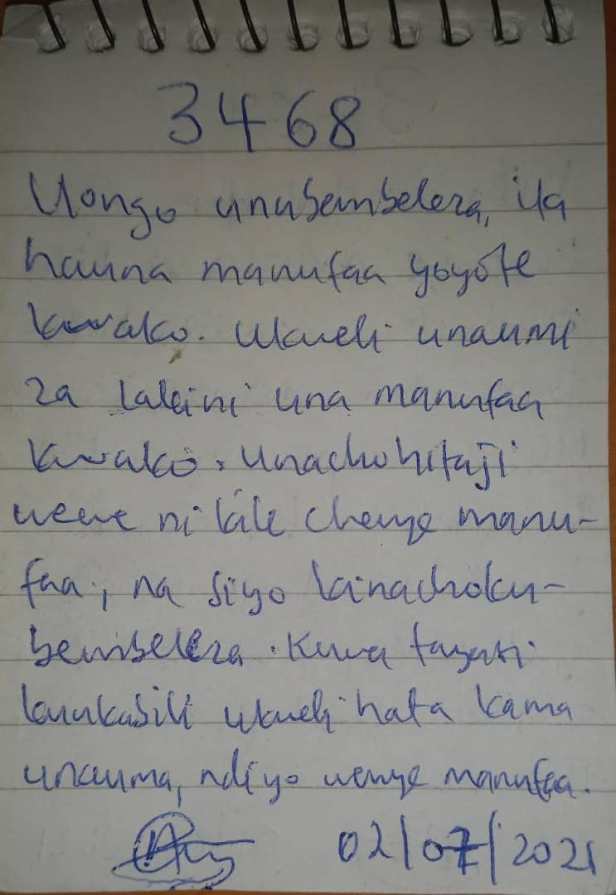 3468
Uongo unabembeleza, ila
hauna manufaa yoyote
kwako. Ukweli unaumi
za lakini una manufaa
kwako. Unachohitaji
wewe ni kile chenye manu-
faa, na siyo kinachoku-
bembeleza. Kuwa tayari
kuukabili ukweli hata kama
unauma, ndiyo wenye manufaa.
02/07/2021